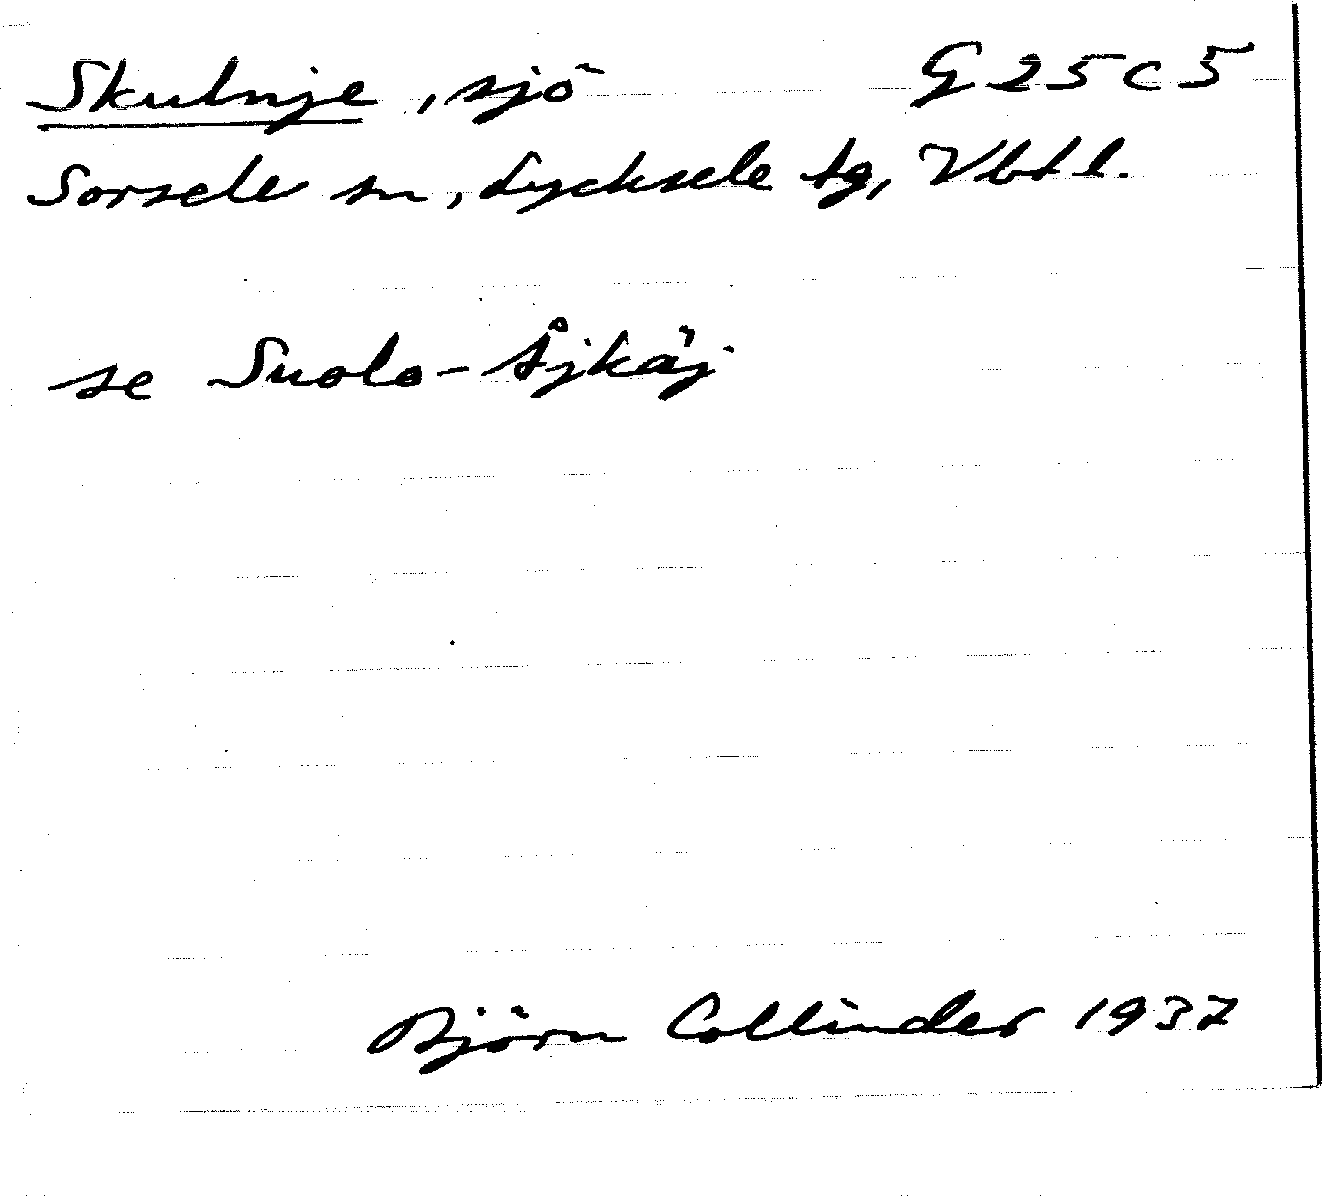 Skulnje, sjö G 25 C 5
Sorsele sn, Lycksele tg, Vbtl.
se Suolo-Åjkåj
Björn Collinder 1937